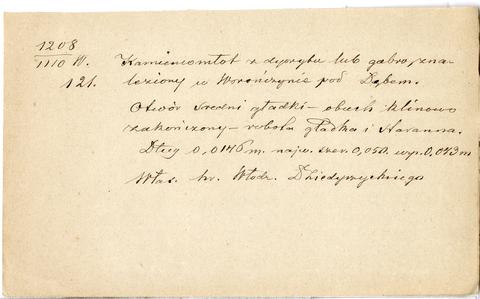 1208
1110 W.
121.
Kamieniomłot z dyorytu lub gabro, zna-
leziony w Worończynie pod Dębem.
Otwór średni gładki – obuch klinowo
zakończony – robota gładka i staranna.
Dług 0,0146 m. najw. szer. 0,050. wys. 0,043 m
Włas. hr. Włodz. Dzieduszyckiego